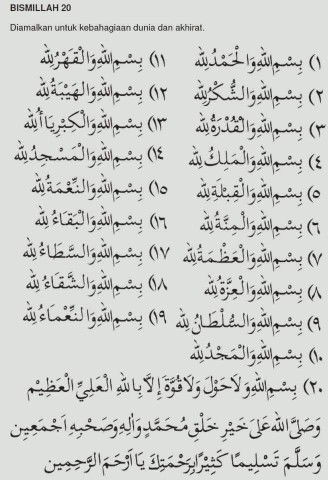 BISMILLAH 20
Diamalkan untuk kebahagiaan dunia dan akhirat.
١) بِسْمِ اللهِ وَالْحَمْدُ لِلّٰهِ
٢) بِسْمِ اللهِ وَالشُّكْرُ لِلّٰهِ
٣) بِسْمِ اللهِ وَالْقُدْرَةُ لِلّٰهِ
٤) بِسْمِ اللهِ وَالْمَلَكُ لِلّٰهِ
٥) بِسْمِ اللهِ وَالْقِبْلَةِ لِلّٰهِ
٦) بِسْمِ اللهِ وَالْمِنَّةُ لِلّٰهِ
٧) بِسْمِ اللهِ وَالْعَظْمَةُ لِلّٰهِ
٨) بِسْمِ اللهِ وَالْعِزَّةُ لِلّٰهِ
٩) بِسْمِ اللهِ وَالسُّلْطَانُ لِلّٰهِ
١٠) بِسْمِ اللهِ وَالْمَجْدُ لِلّٰهِ
١١) بِسْمِ اللهِ وَالْقَهْرُ لِلّٰهِ
١٢) بِسْمِ اللهِ وَالْهَيْبَةُ لِلّٰهِ
١٣) بِسْمِ اللهِ وَالْكِبْرِيَاأُ لِلّٰهِ
١٤) بِسْمِ اللهِ وَالْمَسْجِدُ لِلّٰهِ
١٥) بِسْمِ اللهِ وَالنِّعْمَةُ لِلّٰهِ
١٦) بِسْمِ اللهِ وَالْبَقَاءُ لِلّٰهِ
١٧) بِسْمِ اللهِ وَالسَّطَاءُ لِلّٰهِ
١٨) بِسْمِ اللهِ وَالشَّقَاءُ لِلّٰهِ
١٩) بِسْمِ اللهِ وَالنِّعْمَاءُ لِلّٰهِ
٢٠) بِسْمِ اللهِ وَلَا حَوْلَ وَلَا قُوَّةَ إِلَّا بِاللهِ الْعَلِيِّ الْعَظِيْمِ
وَصَلَّى اللهُ عَلَى خَيْرِ خَلْقِ مُحَمَّدٍ وَاٰلِهِ وَصَحْبِهِ اَجْمَعِيْنَ
وَسَلَّمَ تَسْلِيْمًا كَثِيْرًا بِرَحْمَتِكَ يَا اَرْحَمَ الرَّحِمِيْنَ